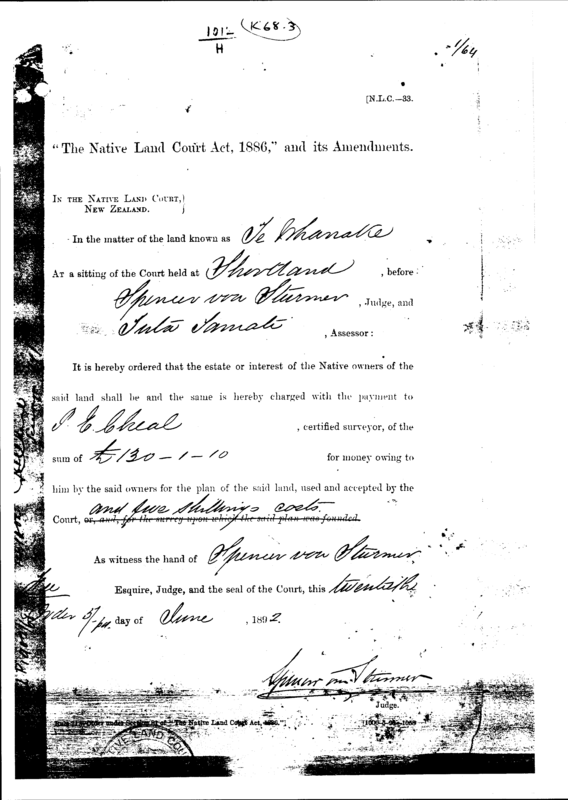 1012 K68.3
H
1/64
[N.L.C.—33.
"The Native Land Court Act, 1886," and its Amendments.
IN THE NATIVE LAND COURT,
NEW ZEALAND.
In the matter of the land known as Te Whanake
AT a sitting of the Court held at Shortland , before
Spencer von Sturmer , Judge, and
Tuta Tamati , Assessor:
It is hereby ordered that the estate or interest of the Native owners of the
said land shall be and the same is hereby charged with the payment to
P. E. Cheal , certified surveyor, of the
sum of £130-1-10 for money owing to
him by the said owners for the plan of the said land, used and accepted by the
and five shillings costs.
Court, or, and, for the survey upon which the said plan was founded.
As witness the hand of Spencer von Sturmer
Esquire, Judge, and the seal of the Court, this twentieth
Order 5/- pd. day of June , 1892.
Spencer von Sturmer
Judge.
under Section 81 of "The Native Land Court Act, 1886."
NATIVE LAND COU